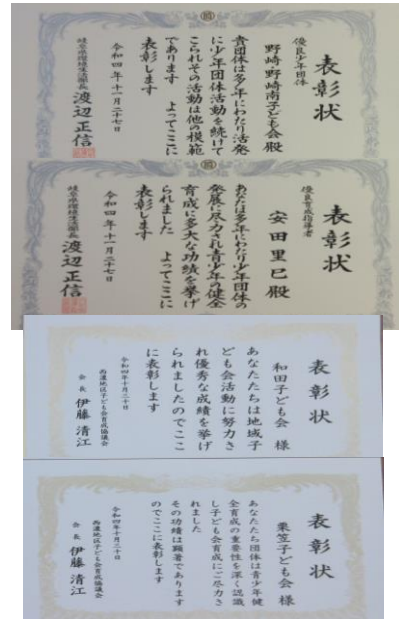 表彰状
優良少年団体
野崎・野崎南子ども会 殿
貴団体は多年にわたり活発
に少年団体活動を続けて
こられその活動は他の模範
であります よってここに
表彰します
令和四年十一月二十七日
岐阜県環境生活部長 渡辺正信
表彰状
優良育成指導者
安田里巳殿
あなたは多年にわたり少年団体の
発展に尽力され青少年の健全
育成に多大な功績を挙げ
られました よってここに
表彰します
令和四年十一月二十七日
岐阜県環境生活部長 渡辺正信
表彰状
和田子ども会 様
あなたたちは地域子
ども会活動に努力さ
れ優秀な成績を挙げ
られましたのでここ
に表彰します
令和四年十月三十日
西濃地区子ども会育成協議会
会長 伊藤清江
表彰状
栗笠子ども会 様
あなたたち団体は青少年健
全育成の重要性を深く認識
し子ども会育成にご尽力さ
れました
その功績は顕著であります
のでここに表彰します
令和四年十月三十日
西濃地区子ども会育成協議会
会長 伊藤清江